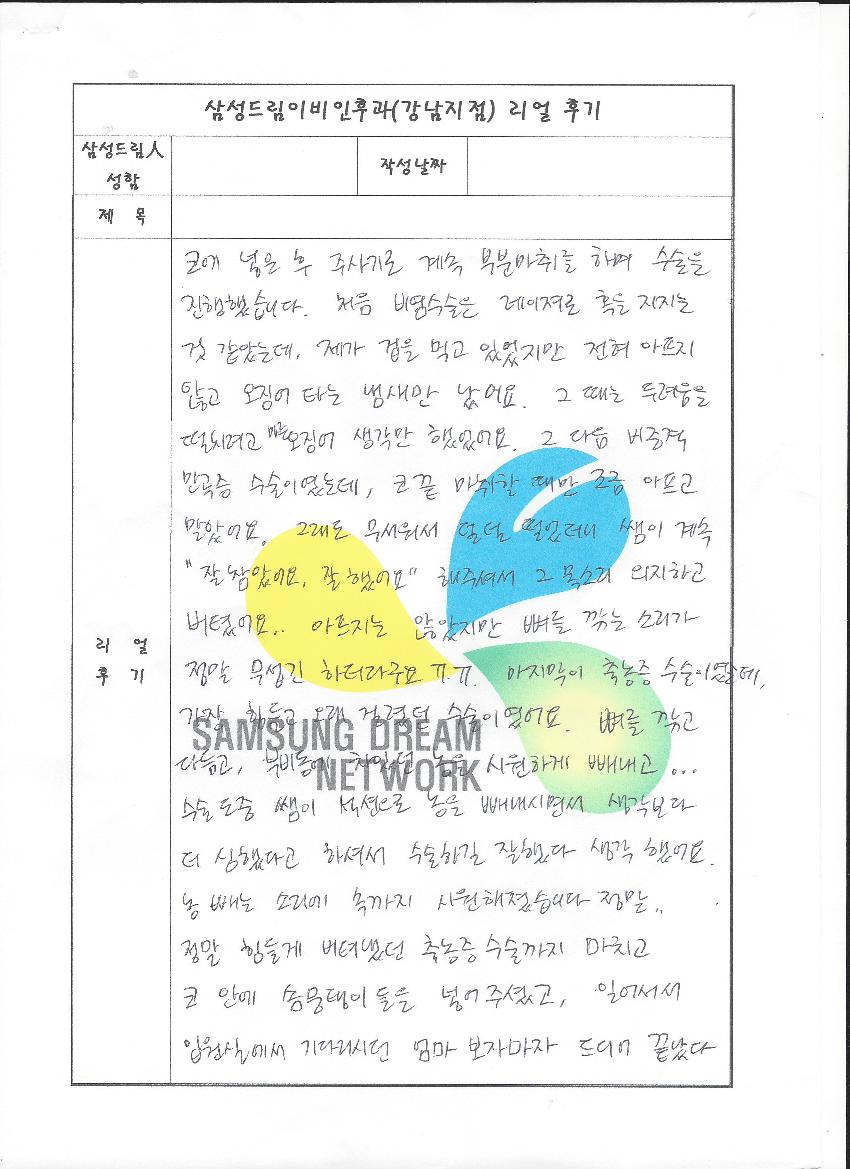 삼성드림이비인후과(강남지점) 리얼 후기
삼성드림人
성함
작성날짜
제 목
리 얼
후 기
코에 넣은 후 주사기로 계속 부분마취를 하며 수술을
진행했습니다. 처음 비염수술은 레이저로 혹을 지지는
것 같았는데, 제가 겁을 먹고 있었지만 전혀 아프지
않고 오징어 타는 냄새만 났어요. 그 때는 두려움을
떨치려고 오징어 생각만 했었어요. 그 다음 비중격
만곡증 수술이였는데, 코 끝 마취할 때만 조금 아프고
말았어요. 그래도 무서워서 덜덜 떨었더니 쌤이 계속
"잘 참았어요, 잘 했어요" 해주셔서 그 목소리 의지하고
버텼어요.. 아프지는 않았지만 뼈를 깎는 소리가
정말 무섭긴 하더라구요 ㅠ.ㅠ. 마지막이 축농증 수술이였는데,
가장 힘들고 오래 걸렸던 수술이였어요. 뼈를 깎고
다듬고, 부비동에 차있던 농을 시원하게 빼내고 ...
수술 도중 쌤이 석션으로 농을 빼내시면서 생각보다
더 심했다고 하셔서 수술하길 잘했다 생각 했어요.
농 빼는 소리에 속까지 시원해졌습니다 정말..
정말 힘들게 버텨냈던 축농증 수술까지 마치고
코 안에 솜뭉탱이들을 넣어 주셨고, 일어서서
입원실에서 기다리시던 엄마 보자마자 드디어 끝났다
SAMSUNG DREAM
NETWORK